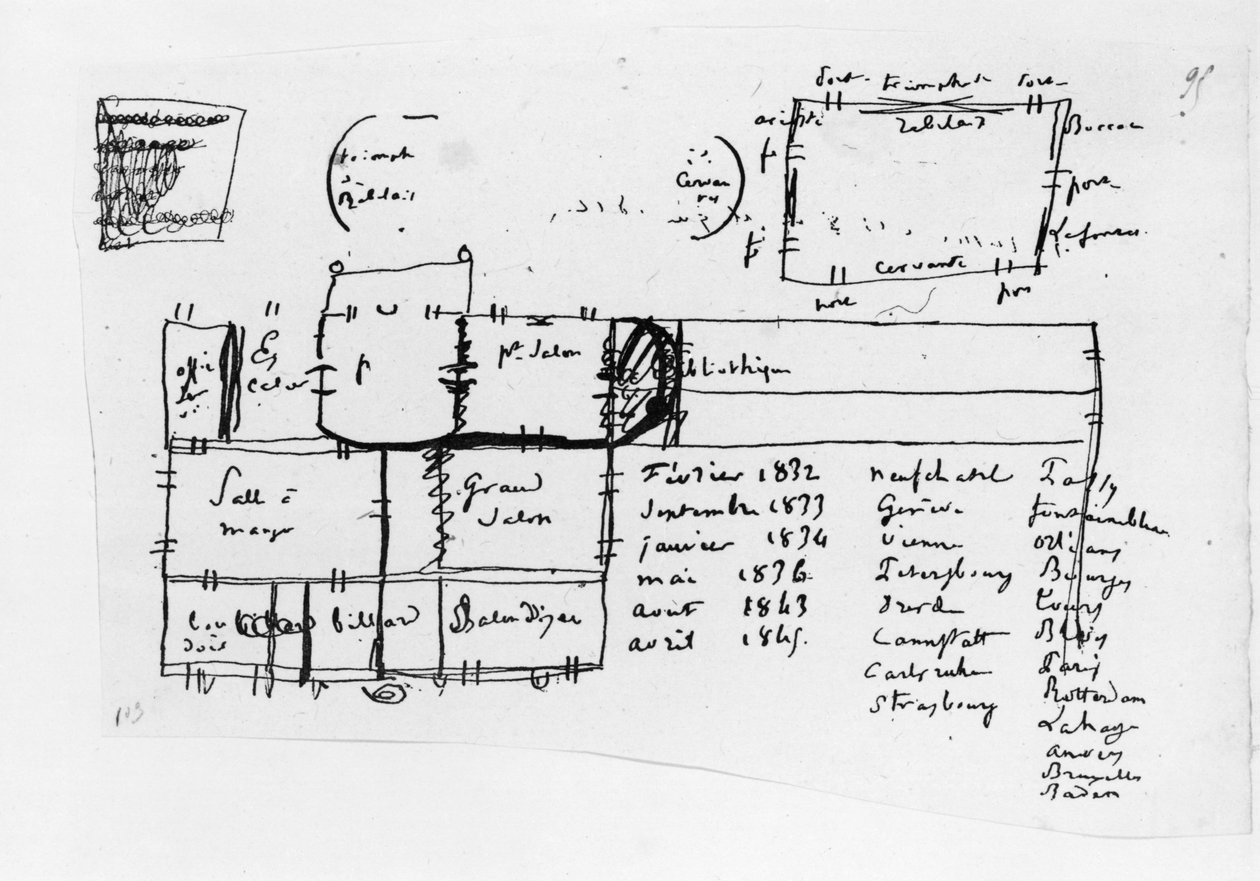 95
triumph
Rabelais
Cervantes
port
triomphe de
Rabelais
port
port
Lafontaine
Cervante
port
port
office
Es
calier
p
pt Salon
Bibliothèque
Salle à
manger
Grand
Salon
billard
Salon d'hyver
Février 1832
Septembre 1833
janvier 1834
mai 1836
aout 1843
avril 1845.
neufchatel
Genève
Vienne
Petersbourg
Dresde
Cannstatt
Carlsruhe
Strasbourg
Passy
fontainebleau
orléans
Bourges
Tours
Blois
Paris
Rotterdam
Lahaye
anvers
Bruxelles
Baden
103